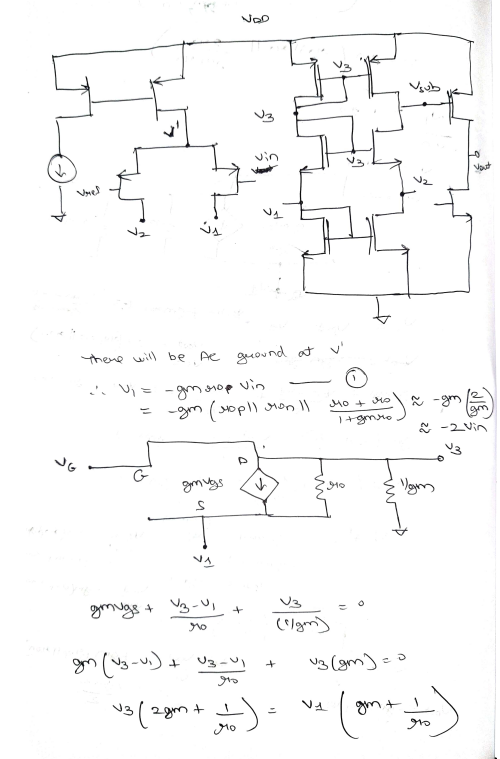 VDD
V3
Vsub
V3
V'
V3
Vin
Vref
Vout
V2
V1
V2
V1
There will be Ac ground at V'
∴ V1 = -gm rop Vin ——— ①
= -gm ( rop || ron || (ro + ro)/(1+gmro) ) ≈ -gm (2/gm)
≈ -2Vin
VG G D V3
gmvgs ro 1/gm
S
V1
gmvgs + (V3-V1)/ro + V3/(1/gm) = 0
gm (V3-V1) + (V3-V1)/ro + V3(gm) = 0
V3 ( 2gm + 1/ro ) = V1 ( gm + 1/ro )